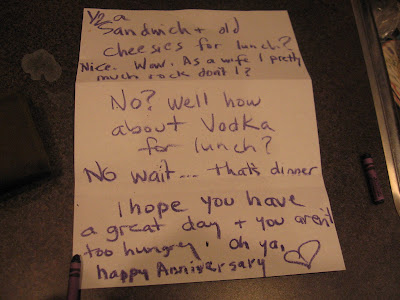 1/2 a
Sandwich + old
cheesies for lunch?
Nice. Wow. As a wife I pretty
much rock don't I?
No? Well how
about Vodka
for lunch?
No wait... that's dinner
I hope you have
a great day + you aren't
too hungry. Oh ya,
happy Anniversary